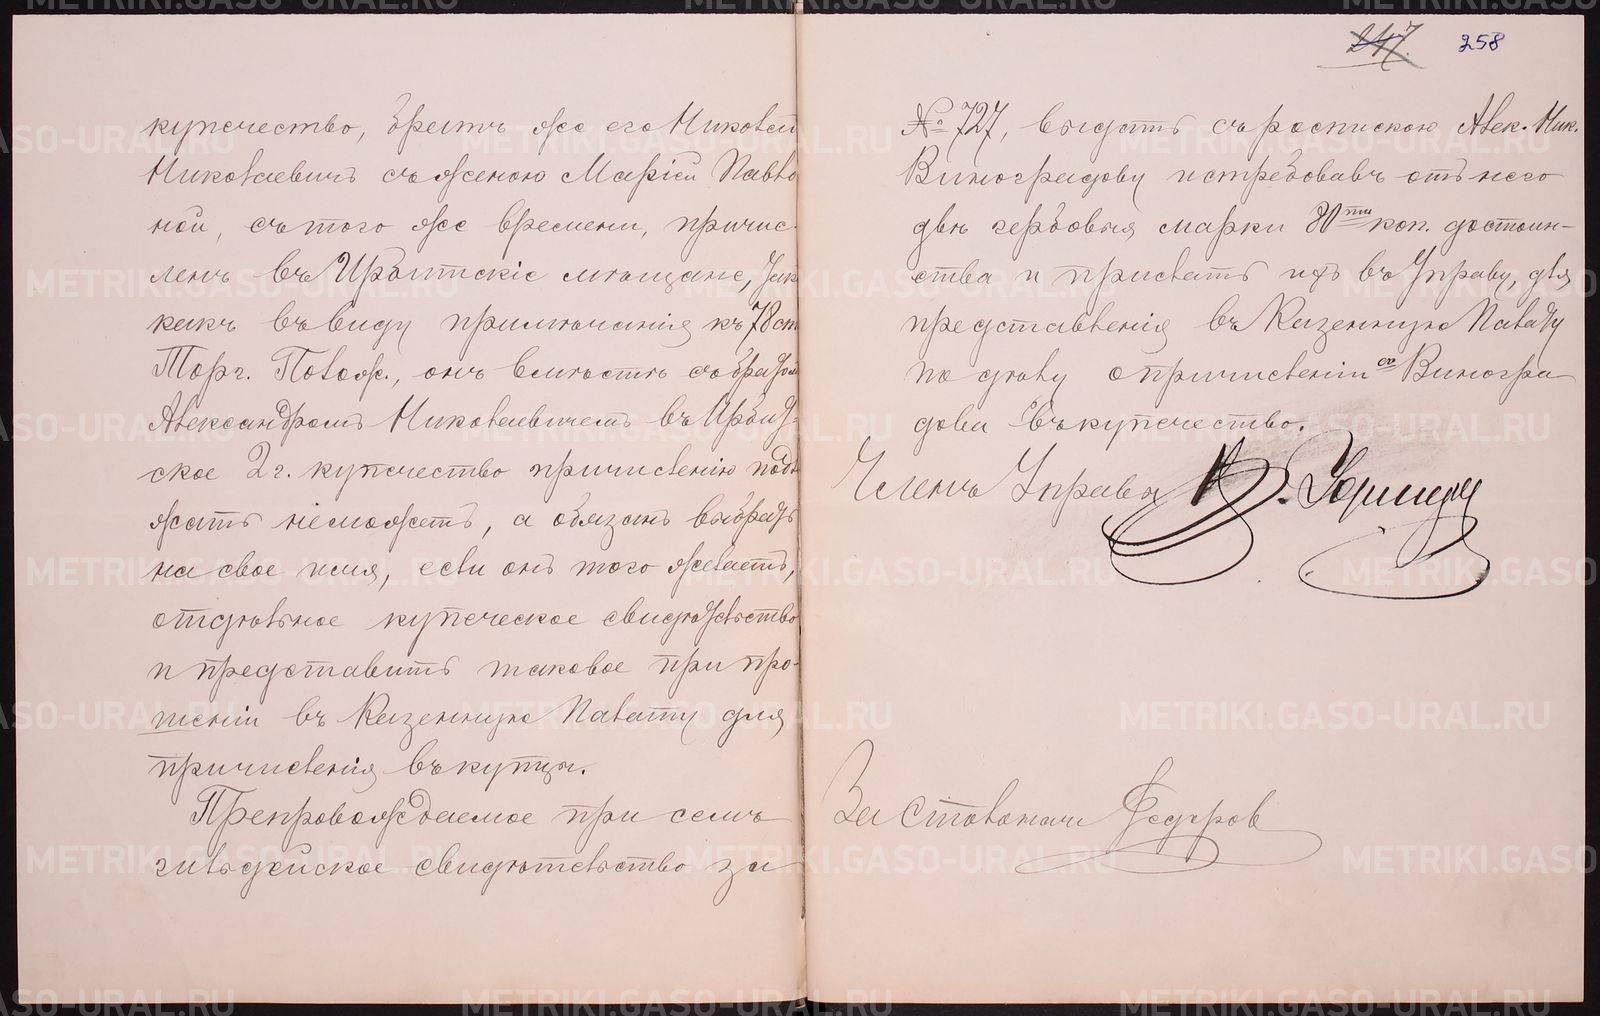 купечество, братъ же его Николай
Николаевичъ съ женою Маріей Павло
ной, съ того же времени, причис-
ленъ въ Ирбитскіе мѣщане, такъ
какъ въ виду примѣчанія къ 78 ст
Торг. Полож., онъ вмѣстѣ съ братом
Александромъ Николаевичемъ въ Ирбит-
ское 2 г. купечество причисленію подле
жать не можетъ, а обязанъ выбрать
на свое имя, если онъ того желаетъ,
отдѣльное купеческое свидѣтельство
и представить таковое при про-
шеніи въ Казенную Палату для
причисленія въ купцы.
Препровождаемое при семъ
гильдейское свидѣтельство за
247 258
№ 727, выдать съ роспискою Алек. Ник.
Виноградову истребовавъ отъ него
двѣ гербовыя марки 80ти коп. достоин-
ства и прислать ихъ въ Управу, для
представленія въ Казенную Палату
по дѣлу о причисленіи Виногра
дова въ купечество.
Членъ Управы
За Столонач. Федоров
METRIKI.GASO-URAL.RU